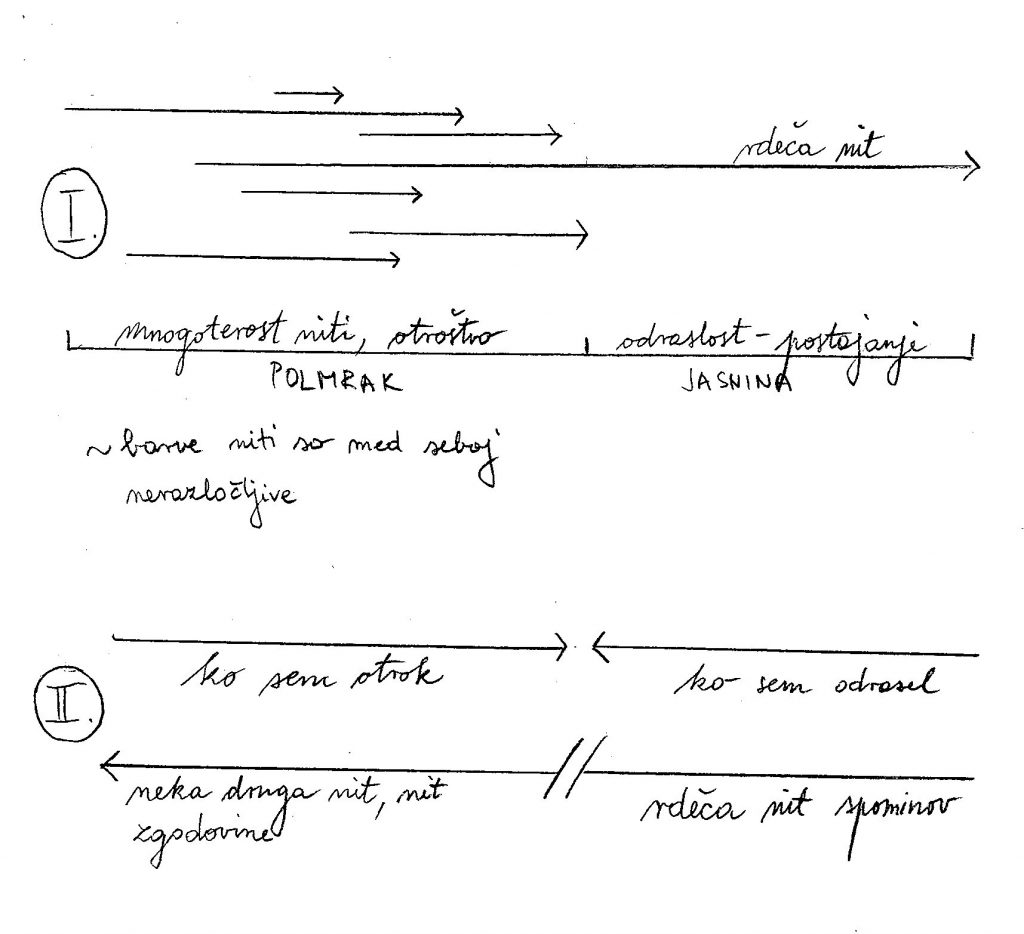 rdeča nit
I.
mnogoterost niti, otroštvo
odraslost - postajanje
POLMRAK
JASNINA
~ barve niti so med seboj
nerazločljive
ko sem otrok
ko sem odrasel
II.
neka druga nit, nit
zgodovine
rdeča nit spominov